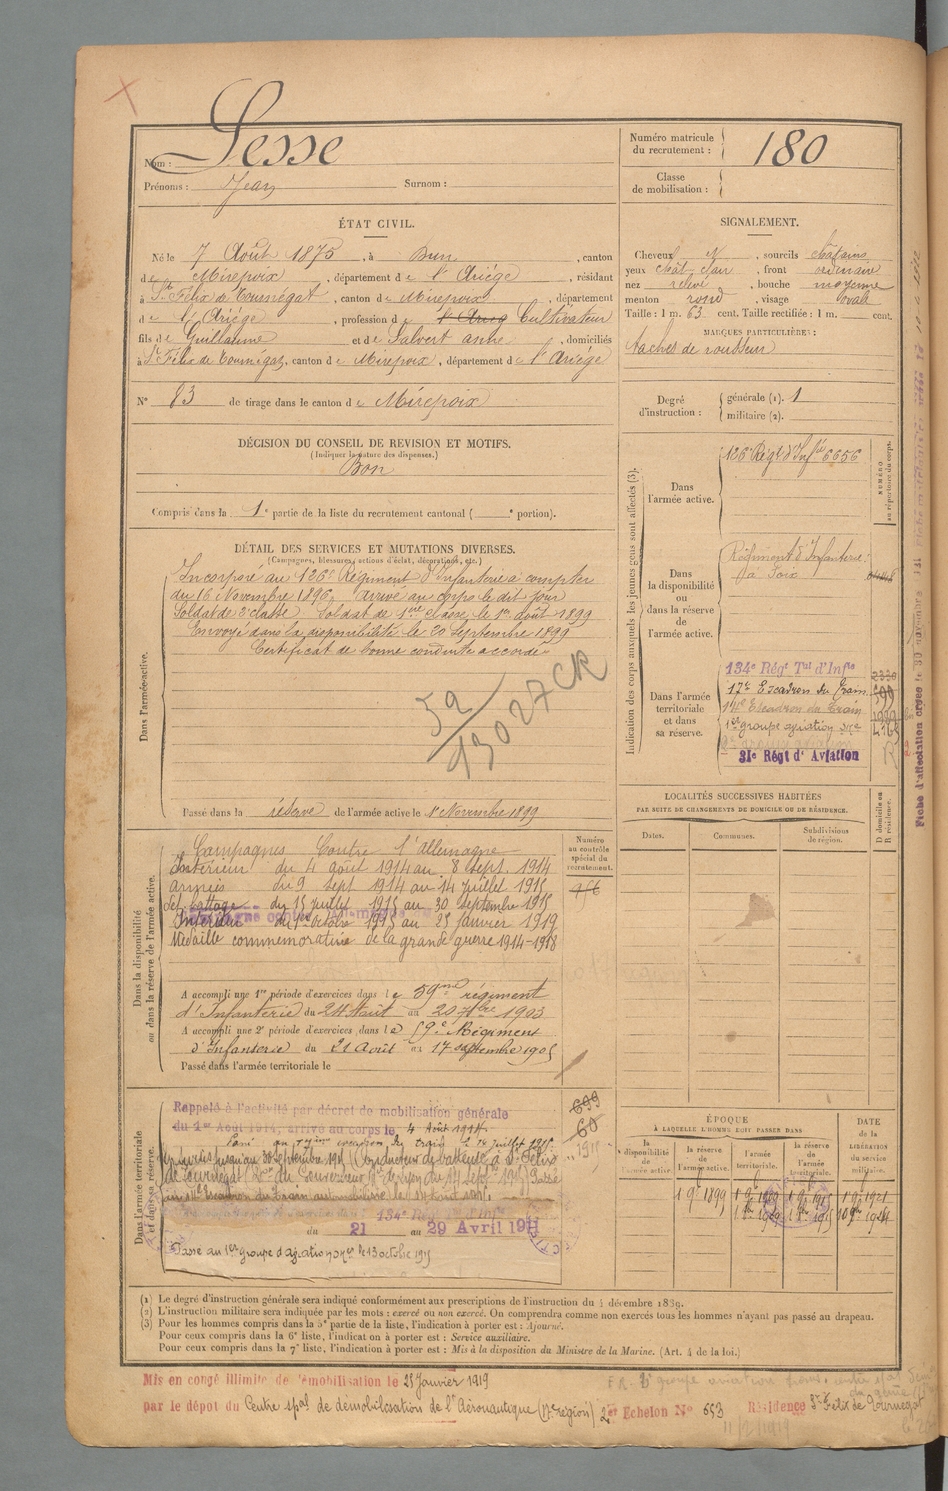 Nom : Lesse
Prénoms : Jean Surnom :
Numéro matricule du recrutement : 180
Classe de mobilisation :
ÉTAT CIVIL.
Né le 7 Août 1875, à Dun, canton
de Mirepoix, département de l'Ariége, résidant
à St Félix de Tournégat, canton de Mirepoix, département
de l'Ariége, profession de Cultivateur
fils de Guillaume et de Salvert anne, domiciliés
à St Félix de Tournégat, canton de Mirepoix, département de l'Ariége
N° 83 de tirage dans le canton de Mirepoix
SIGNALEMENT.
Cheveux N, sourcils châtains
yeux chât. clair, front ordinaire
nez relevé, bouche moyenne
menton rond, visage ovale
Taille : 1 m. 63 cent. Taille rectifiée : 1 m. cent.
MARQUES PARTICULIÈRES :
taches de rousseur
Degré d'instruction : générale (1). 1
militaire (2).
DÉCISION DU CONSEIL DE REVISION ET MOTIFS.
(Indiquer la nature des dispenses.)
Bon
Compris dans la 1e partie de la liste du recrutement cantonal ( e portion).
DÉTAIL DES SERVICES ET MUTATIONS DIVERSES.
(Campagnes, blessures, actions d'éclat, décorations, etc.)
Dans l'armée active.
Incorporé au 126e Régiment d'Infanterie à compter
du 16 Novembre 1896, arrivé au corps le dit jour
Soldat de 2e classe Soldat de 1ère classe le 1er août 1899
Envoyé dans la disponibilité le 20 Septembre 1899
Certificat de bonne conduite accordé
Passé dans la réserve de l'armée active le 1er Novembre 1899
Indication des corps auxquels les jeunes gens sont affectés (3).
NUMÉRO au répertoire du corps.
Dans l'armée active. 126e Régt d'Infie 6656
Dans la disponibilité ou dans la réserve de l'armée active. Régiment d'Infanterie
à Foix
Dans l'armée territoriale et dans sa réserve.
134e Régt Tal d'Infie
17e Escadron du Train
14e Escadron du Train
1er groupe aviation
31e Régt d'Aviation
LOCALITÉS SUCCESSIVES HABITÉES
PAR SUITE DE CHANGEMENTS DE DOMICILE OU DE RÉSIDENCE.
Dates. Communes. Subdivisions de région.
D domicile ou R résidence.
Dans la disponibilité ou dans la réserve de l'armée active.
Numéro au contrôle spécial du recrutement.
Campagnes Contre l'allemagne
Intérieur du 4 août 1914 au 8 sept. 1914
armées du 9 sept 1914 au 14 juillet 1915
Dét. battage du 15 juillet 1915 au 30 septembre 1915
Intérieur du 1er octobre 1915 au 25 janvier 1919
Médaille commemorative de la grande guerre 1914-1918
A accompli une 1re période d'exercices dans le 59me régiment
d'Infanterie du 24 Août au 20 7bre 1903
A accompli une 2e période d'exercices dans le 59e Régiment
d'Infanterie du 21 Août au 17 septembre 1905
Passé dans l'armée territoriale le
Dans l'armée territoriale et dans sa réserve.
Rappelé à l'activité par décret de mobilisation générale
du 1er Août 1914, arrivé au corps le 4 Août 1914.
Passé au 17ème escadron du train le 14 juillet 1915
jusqu'au 30 septembre 1915 (Conducteur de batteuse à St Félix
de Tournégat) Don du Gouverneur Mre de Lyon du 14 sept. 1915 Passé
au 14e Escadron du Train
134e Régt Tal d'Inf
du 21 au 29 Avril 1911
Passé au 1er groupe d'aviation le 13 octobre 1915
699
60
ÉPOQUE
À LAQUELLE L'HOMME DOIT PASSER DANS
la disponibilité de l'armée active. la réserve de l'armée active. l'armée territoriale. la réserve de l'armée territoriale.
DATE de la LIBÉRATION du service militaire.
(1) Le degré d'instruction générale sera indiqué conformément aux prescriptions de l'instruction du 4 décembre 1889.
(2) L'instruction militaire sera indiquée par les mots : exercé ou non exercé. On comprendra comme non exercés tous les hommes n'ayant pas passé au drapeau.
(3) Pour les hommes compris dans la 5e partie de la liste, l'indication à porter est : Ajourné.
Pour ceux compris dans la 6e liste, l'indication à porter est : Service auxiliaire.
Pour ceux compris dans la 7e liste, l'indication à porter est : Mis à la disposition du Ministre de la Marine. (Art. 4 de la loi.)
Mis en congé illimité de démobilisation le 25 Janvier 1919
par le dépot du Centre spal de démobilisation de l'Aéronautique (17e région) 2e Echelon N° 653 Résidence St Félix de Tournegat